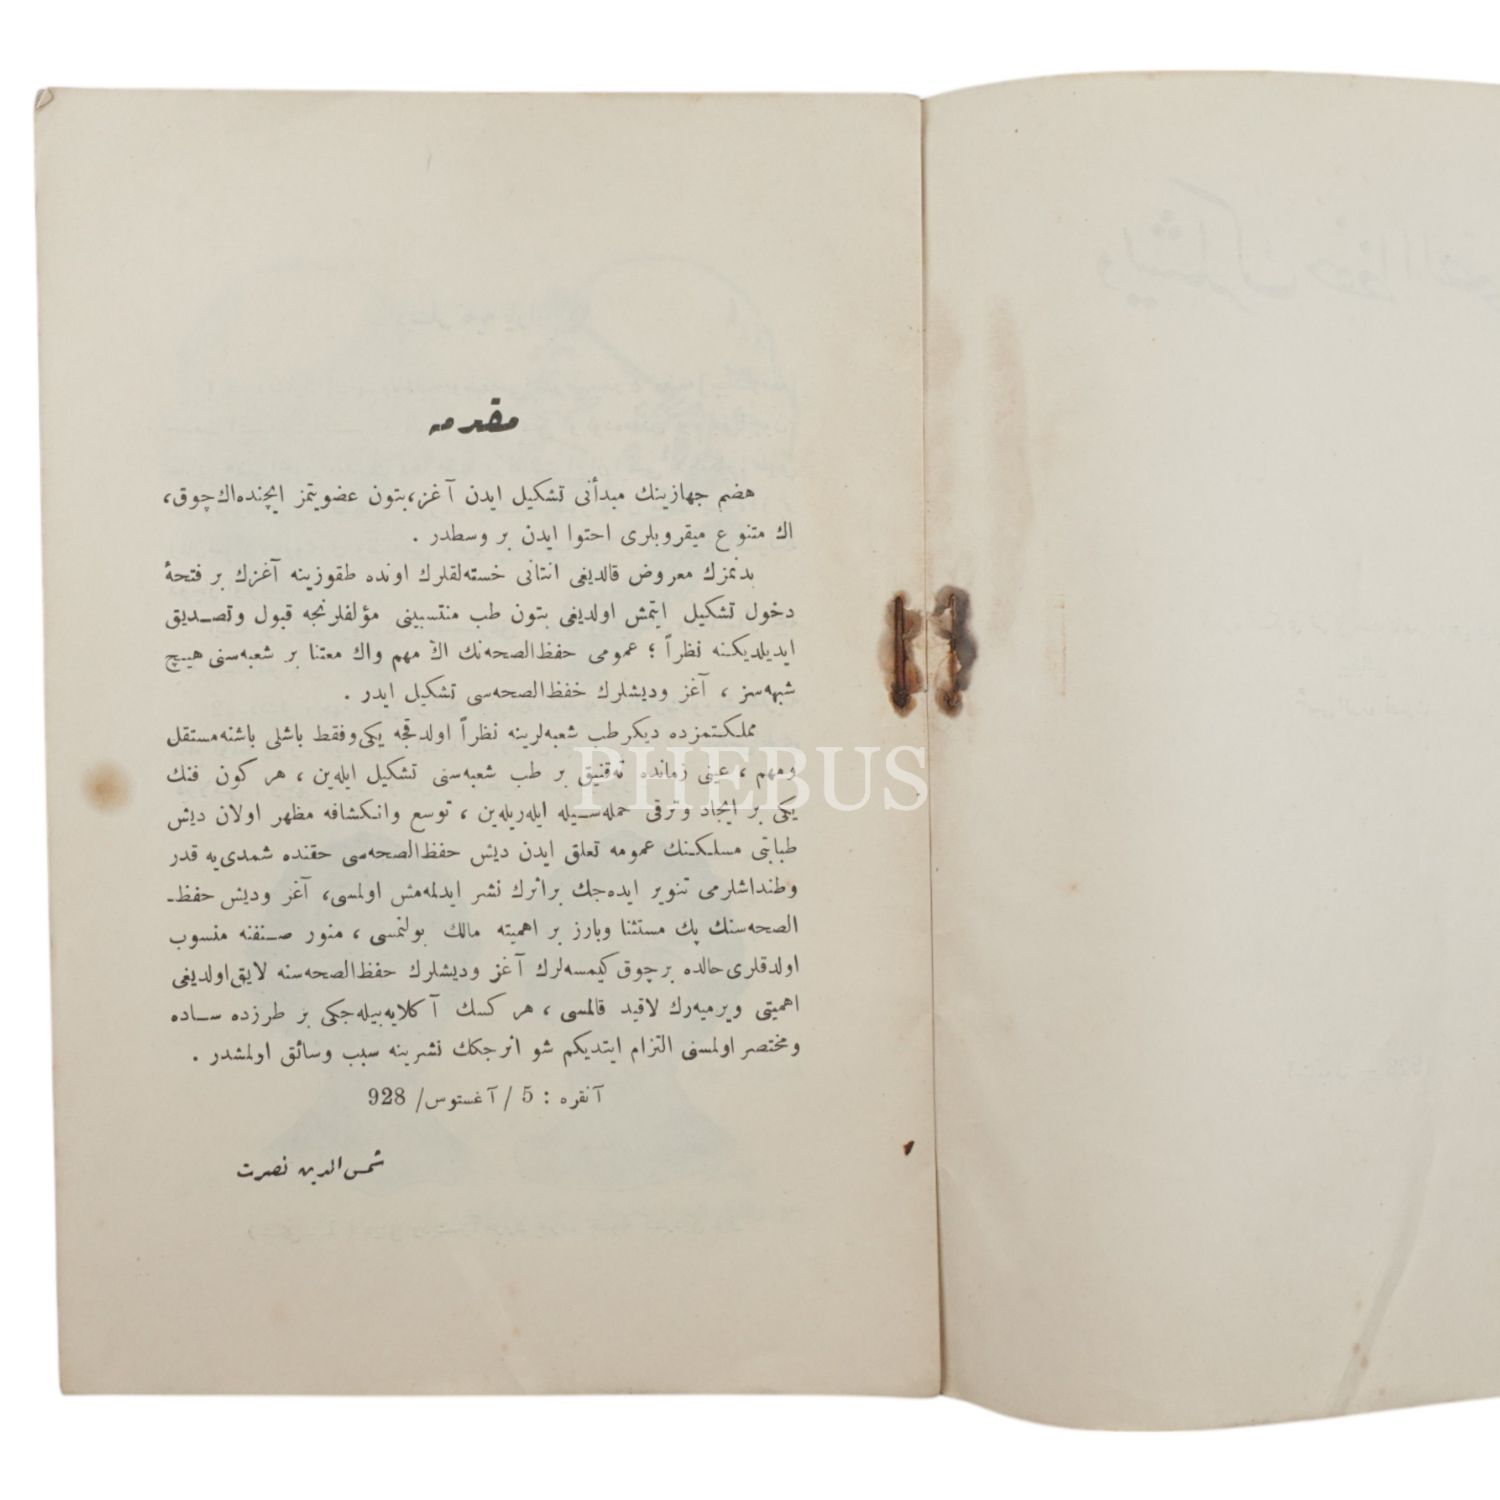 مقدمه
هضم جهازينك مبدأنى تشكيل ايدن آغز، بتون عضويتمز ايچنده اك چوق،
اك متنوع ميقروبلرى احتوا ايدن بر وسطدر .
بدنمزك معروض قالديغى انتانى خسته‌لقلرك اونده طقوزينه آغزك بر فتحۀ
دخول تشكيل ايتمش اولديغى بتون طب منتسبينى مؤلفلرنجه قبول وتصـديق
ايديلديكـنه نظراً ؛ عمومى حفظ‌الصحه‌نك اڭ مهم واك معتنا بر شعبه‌سنى هيـچ
شبهه‌سز ، آغز وديشلرك حفظ‌الصحه‌سى تشكيل ايدر .
مملكـتمزده ديكر طب شعبه‌لرينه نظراً اولدقجه يكى وفقط باشلى باشنه مستقل
ومهم ، عينى زمانده ته‌قنيق بر طب شعبه‌سنى تشكيل ايله‌ين ، هر كون فنك
يكى بر ايجاد وترقى حمله‌سـيله ايله‌ريله‌ين ، توسع وانـكشافه مظهر اولان ديش
طبابتى مسلـكـنك عمومه تعلق ايدن ديش حفظ‌الصحه‌سى حقنده شمدى‌يه قدر
وطنداشلرمى تنوير ايده‌جك براثرك نشر ايدلمه‌مش اولمسى، آغز وديش حفظـ
الصحه‌سنك پك مستثنا وبارز بر اهميته مالك بولنمسى ، منور صـنفنه منسوب
اولدقلرى حالده برچوق كيمسه‌لرك آغز وديشلرك حفظ‌الصحه‌سنه لايق اولديغى
اهميتى ويرميه‌رك لاقيد قالمسى ، هر كسك آكلايه‌بيله‌جكى بر طرزده سـاده
ومختصر اولمسنى التزام ايتديكم شو اثرجكك نشرينه سبب وسائق اولمشدر .
آنقره : 5 / آغستوس/ 928
شمس‌الدين نصرت
PHEBUS